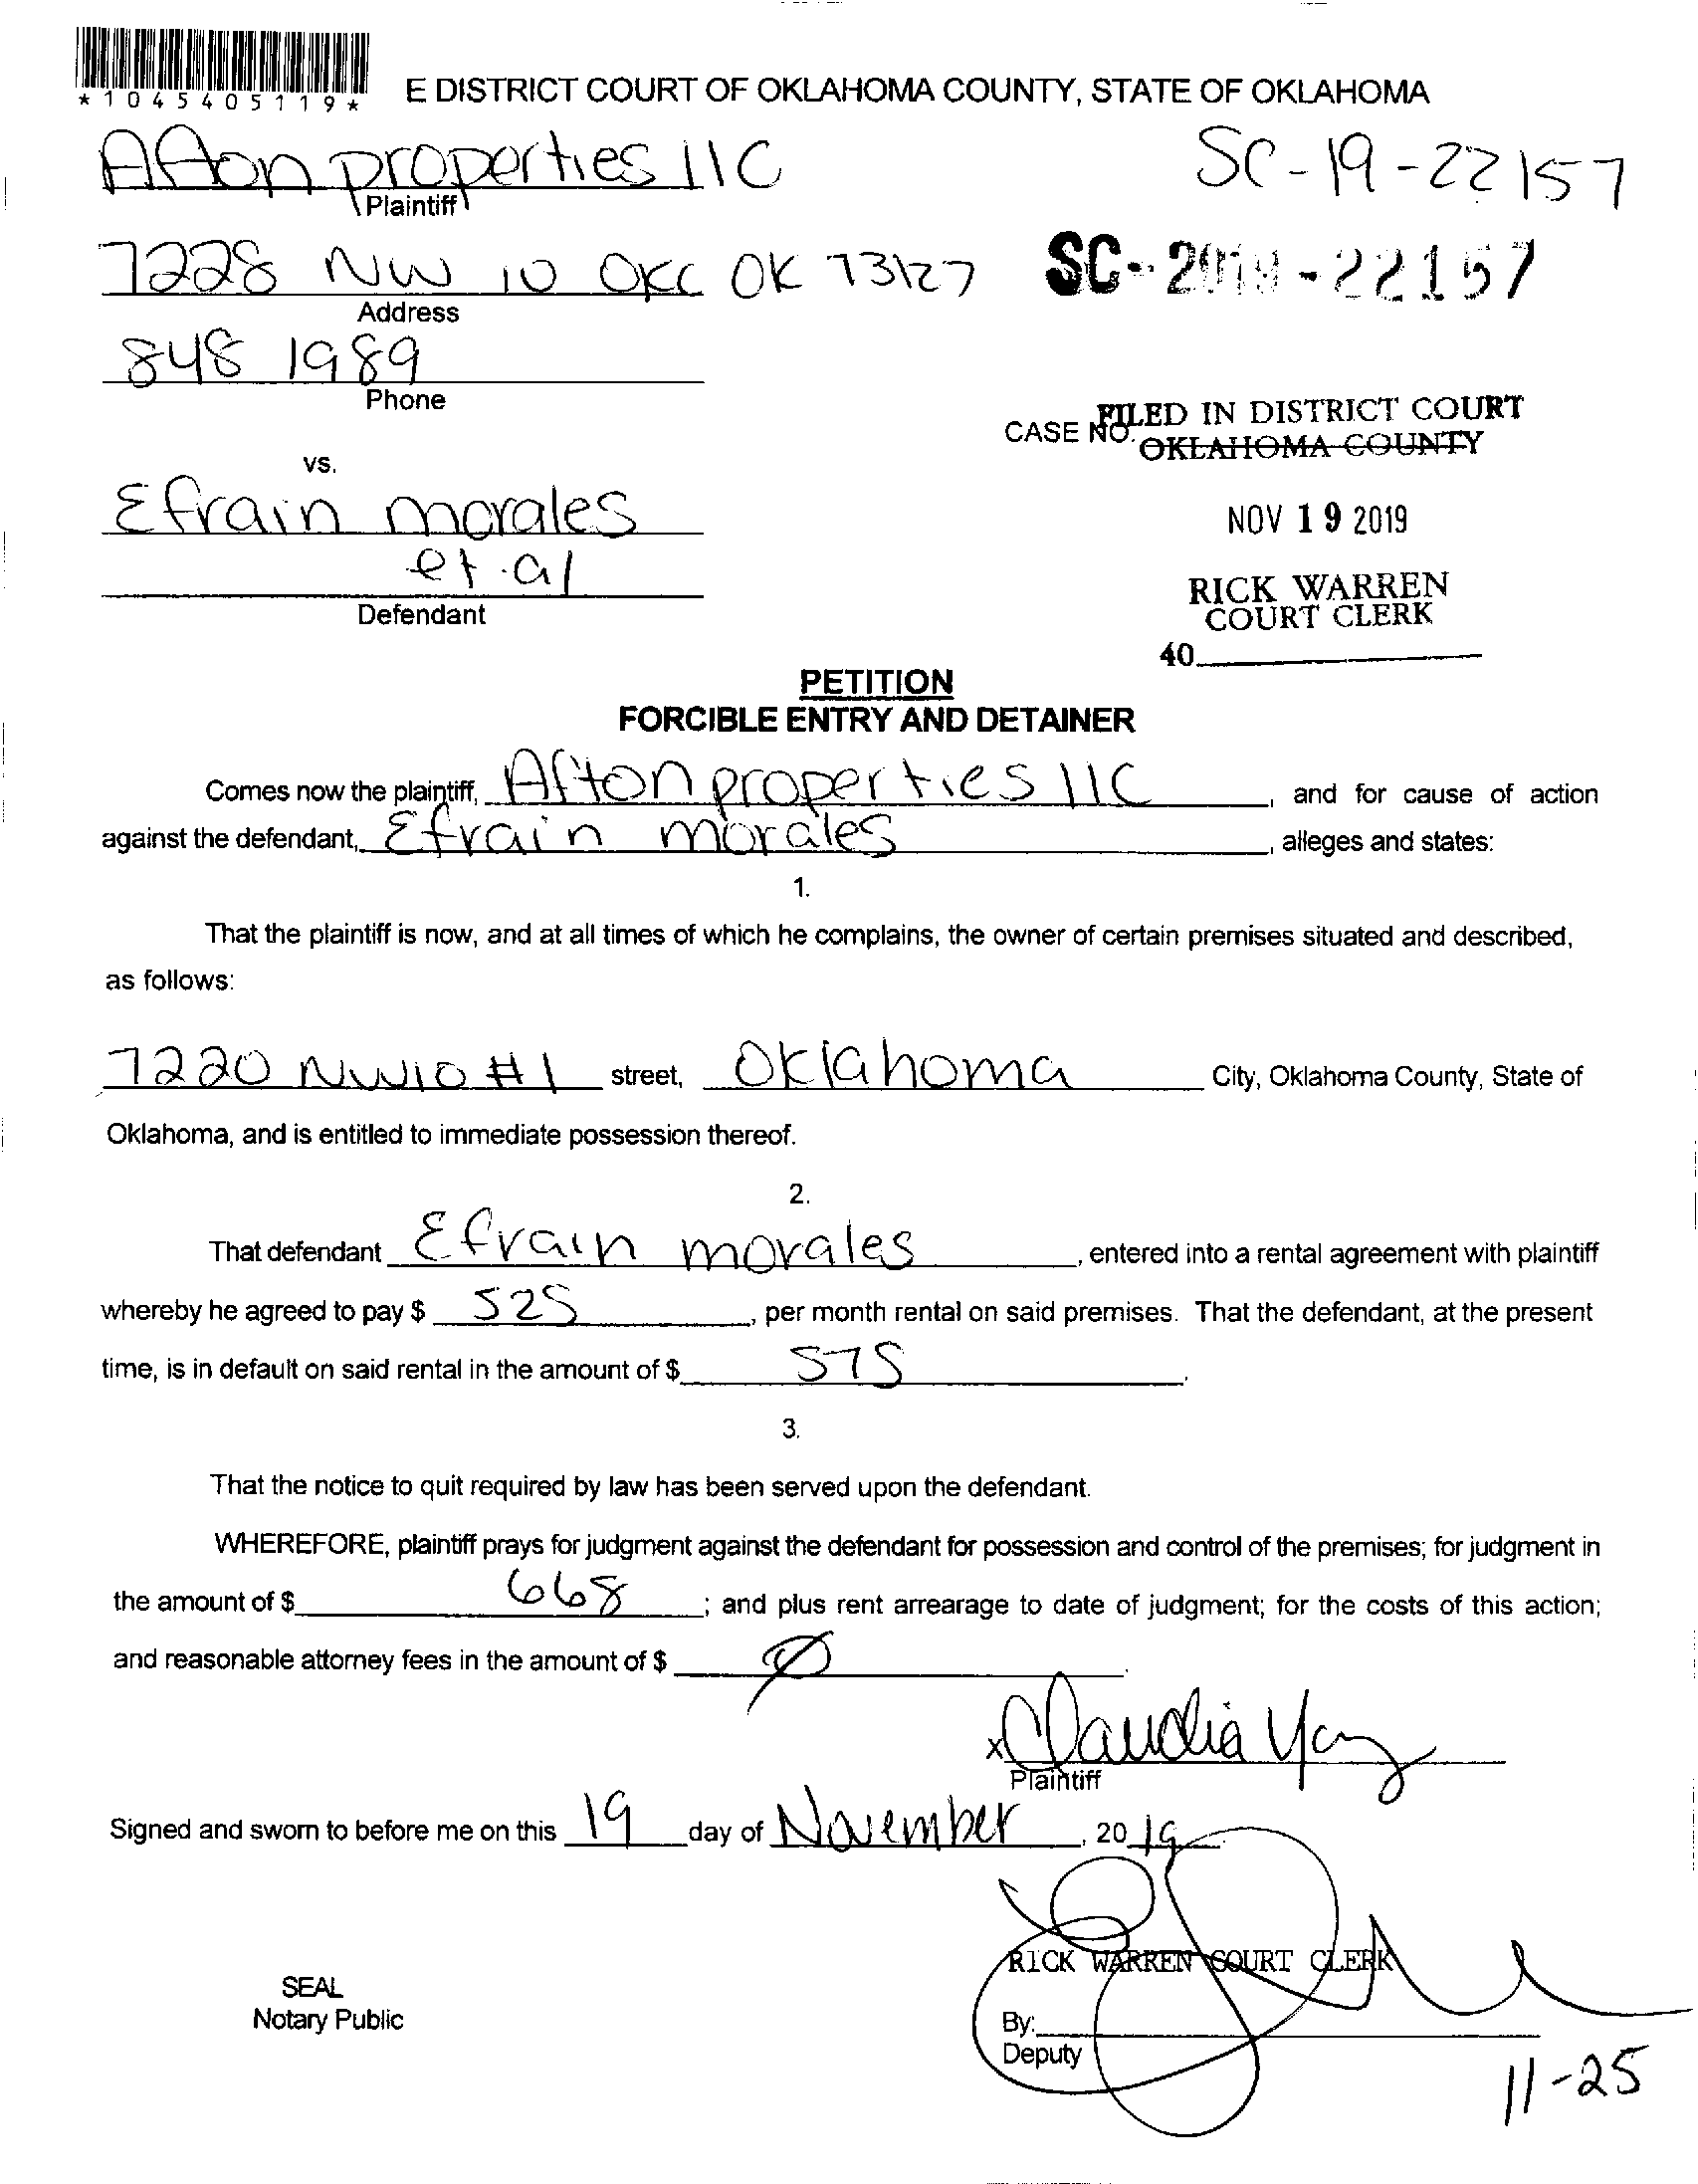 *1045405119*
E DISTRICT COURT OF OKLAHOMA COUNTY, STATE OF OKLAHOMA
Afton properties llC
SC-19-22157
Plaintiff
7228 NW 10 OKC OK 73127
SC-2019-22157
Address
848 1989
Phone
CASE NO.
FILED IN DISTRICT COURT
OKLAHOMA COUNTY
vs.
Efrain morales
NOV 19 2019
et.al
Defendant
RICK WARREN
COURT CLERK
40
PETITION
FORCIBLE ENTRY AND DETAINER
Comes now the plaintiff, Afton properties llC, and for cause of action
against the defendant, Efrain morales, alleges and states:
1.
That the plaintiff is now, and at all times of which he complains, the owner of certain premises situated and described,
as follows:
7220 NW10 #1 street, Oklahoma City, Oklahoma County, State of
Oklahoma, and is entitled to immediate possession thereof.
2.
That defendant Efrain morales, entered into a rental agreement with plaintiff
whereby he agreed to pay $ 525, per month rental on said premises. That the defendant, at the present
time, is in default on said rental in the amount of $ 575.
3.
That the notice to quit required by law has been served upon the defendant.
WHEREFORE, plaintiff prays for judgment against the defendant for possession and control of the premises; for judgment in
the amount of $ 668; and plus rent arrearage to date of judgment; for the costs of this action;
and reasonable attorney fees in the amount of $ Ø.
x Claudia
Plaintiff
Signed and sworn to before me on this 19 day of November, 2019.
RICK WARREN COURT CLERK
SEAL
Notary Public
By:
Deputy
11-25